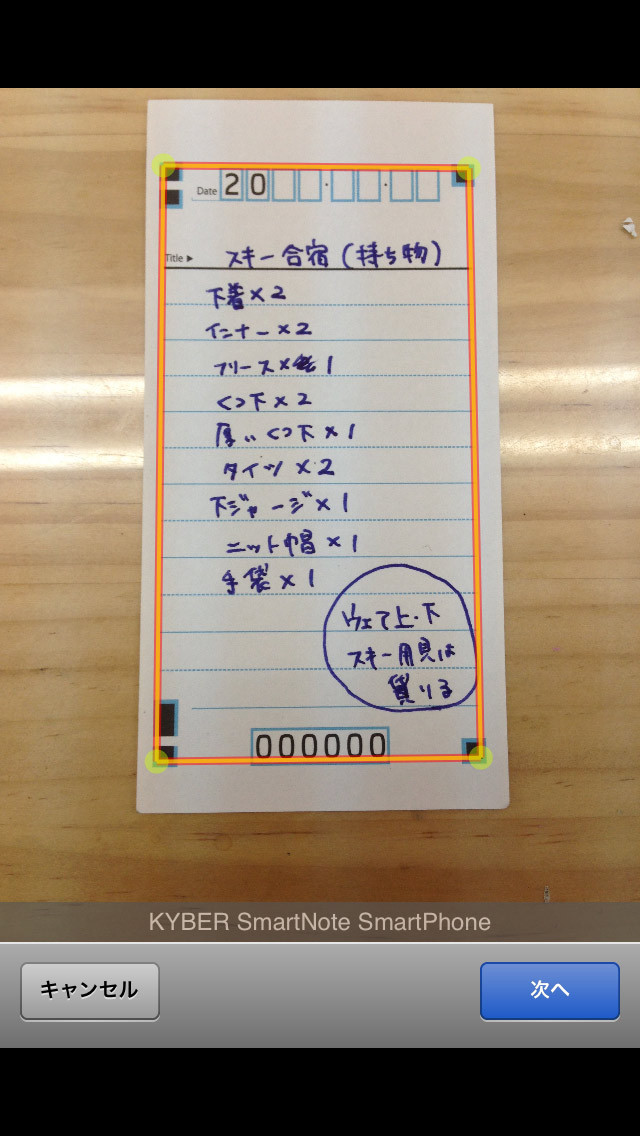 Date 20
Title ▶ スキー合宿(持ち物)
下着×2
インナー×2
フリース× 1
くつ下×2
厚いくつ下×1
タイツ×2
下ジャージ×1
ニット帽×1
手袋×1
ウェア上・下
スキー用具は
借りる
000000
KYBER SmartNote SmartPhone
キャンセル
次へ